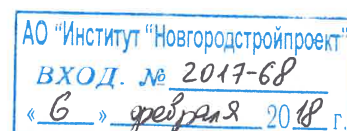 АО "Институт "Новгородстройпроект"
ВХОД. № 2017-68
« 6 » февраля 2018 г.